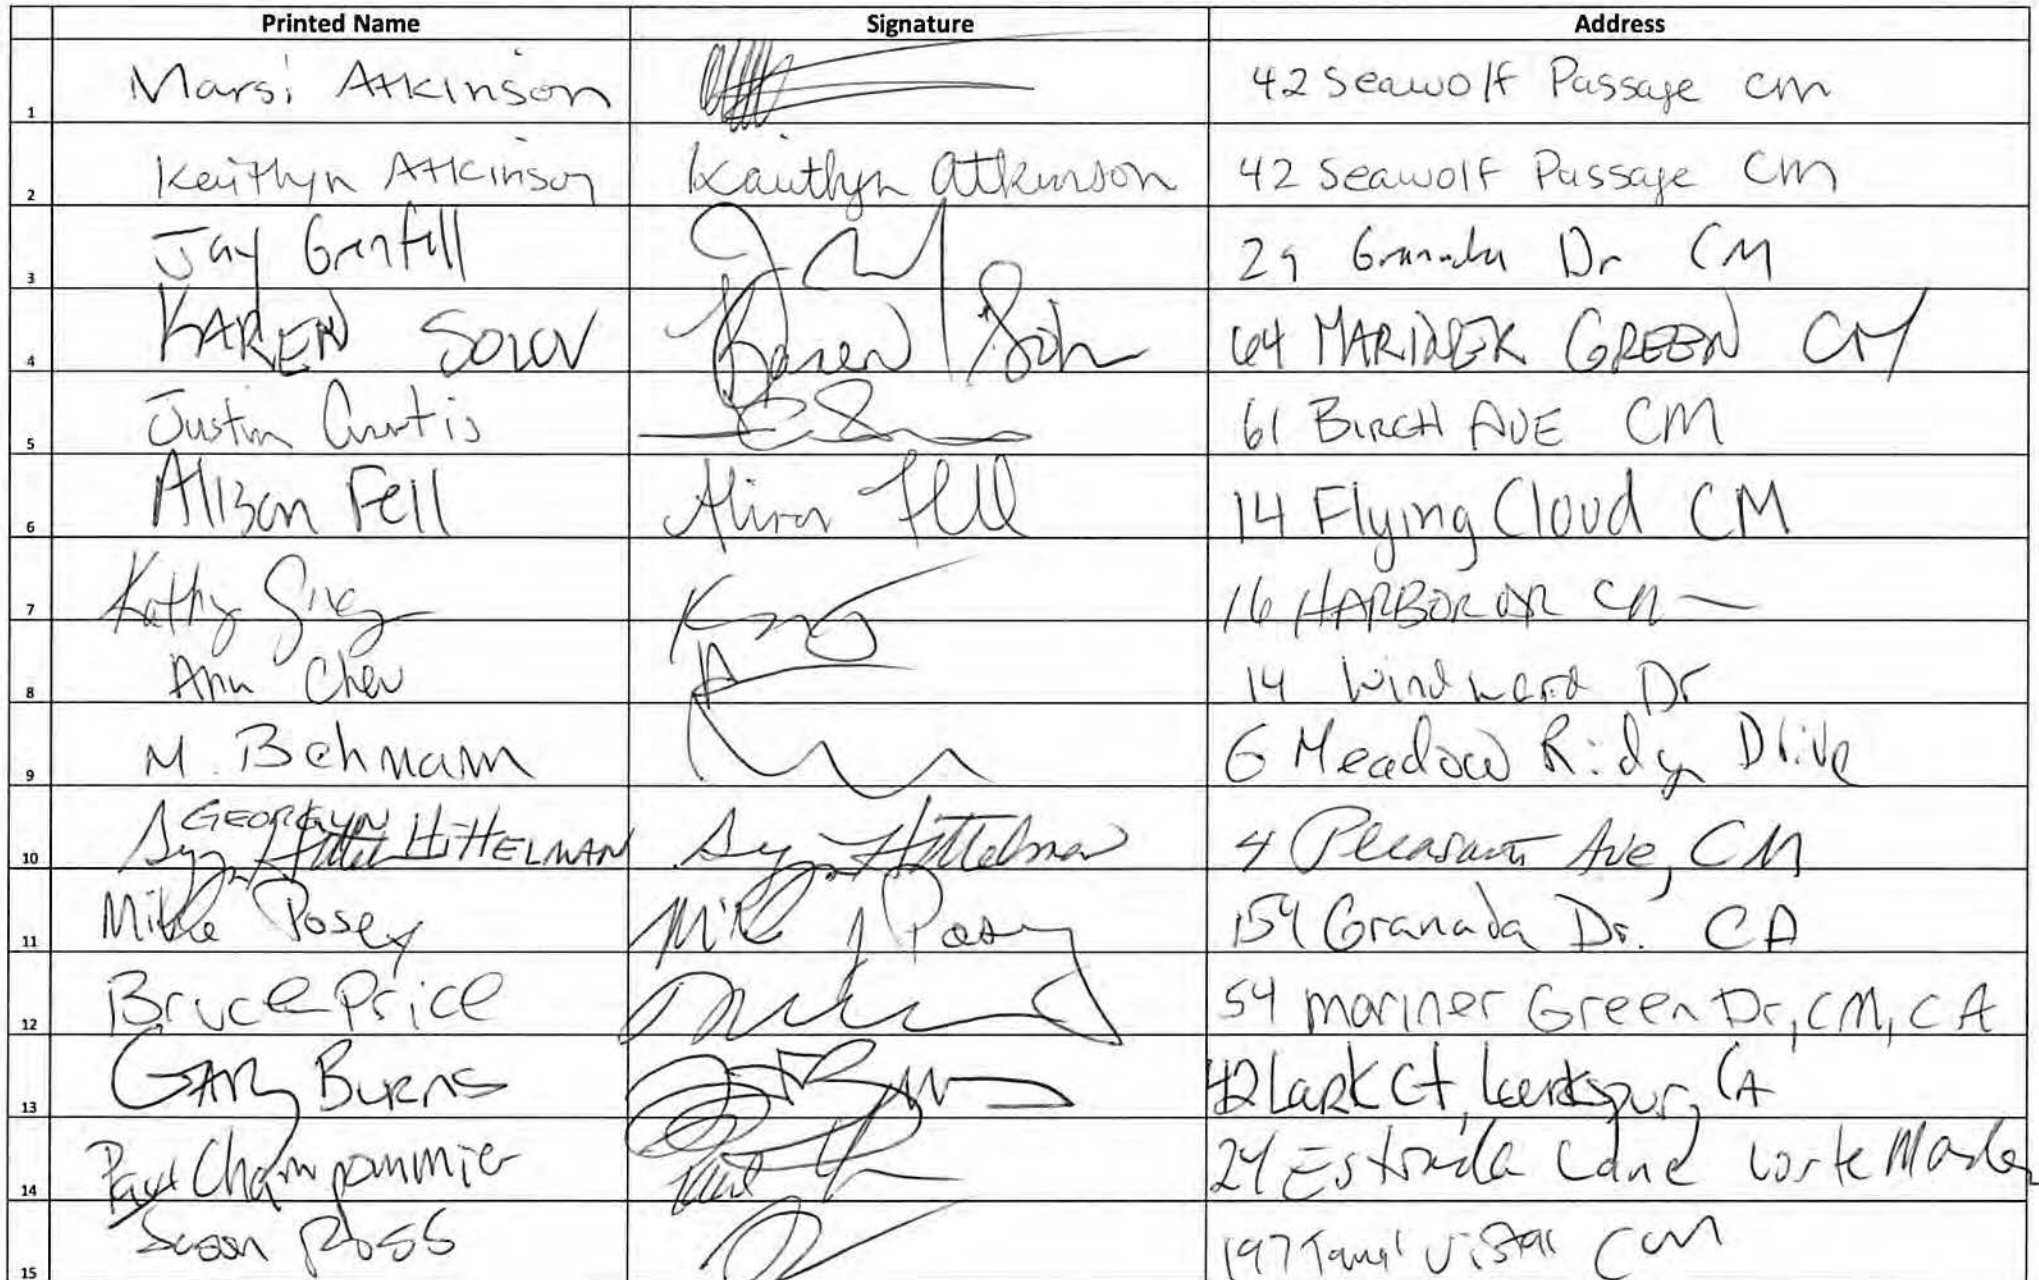 Printed Name Signature Address
1 Marsi Atkinson 42 Seawolf Passage CM
2 Kaitlyn Atkinson Kaitlyn Atkinson 42 Seawolf Passage CM
3 Jay Grenfell 29 Granada Dr CM
4 KAREN Karen 64 MARINER GREEN CM
5 Justin Curtis 61 BIRCH AVE CM
6 Alison Fell Alison Fell 14 Flying Cloud CM
7 Kathy 16 HARBOR DR CM
8 Ann 14 Windward Dr
9 M. Behnam 6 Meadow Ridge Drive
10 GEORGYN HITTELMAN Hittelman 4 Pleasant Ave, CM
11 Mike Posey Mike J Posey 154 Granada Dr. CA
12 Bruce Price 54 Mariner Green Dr, CM, CA
13 GARY BURNS 42 Lark Ct, Larkspur, CA
14 Paul 24 Estrada Lane Corte Madera
15 Susan Ross 197 Tamal Vista CM